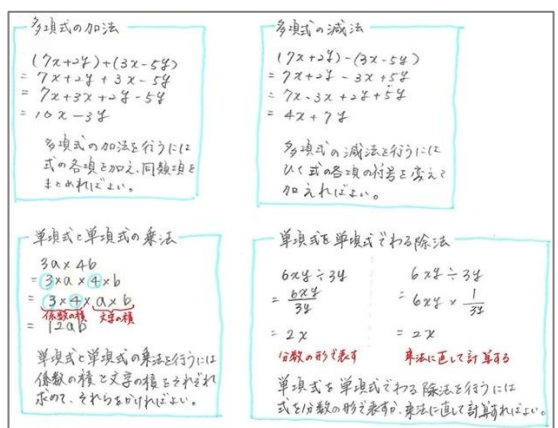 多項式の加法
(7x+2y)+(3x-5y)
= 7x+2y+3x-5y
= 7x+3x+2y-5y
= 10x-3y
多項式の加法を行うには
式の各項を加え、同類項を
まとめればよい。
多項式の減法
(7x+2y)-(3x-5y)
= 7x+2y-3x+5y
= 7x-3x+2y+5y
= 4x+7y
多項式の減法を行うには
ひく式の各項の符号を変えて
加えればよい。
単項式と単項式の乗法
3a×4b
= 3×a×4×b
= 3×4×a×b
係数の積 文字の積
= 12ab
単項式と単項式の乗法を行うには
係数の積と文字の積をそれぞれ
求めて、それらをかければよい。
単項式を単項式でわる除法
6xy÷3y
= 6xy/3y
= 2x
分数の形で表す
6xy÷3y
= 6xy×1/3y
= 2x
乗法に直して計算する
単項式を単項式でわる除法を行うには
式を分数の形で表すか、乗法に直して計算すればよい。